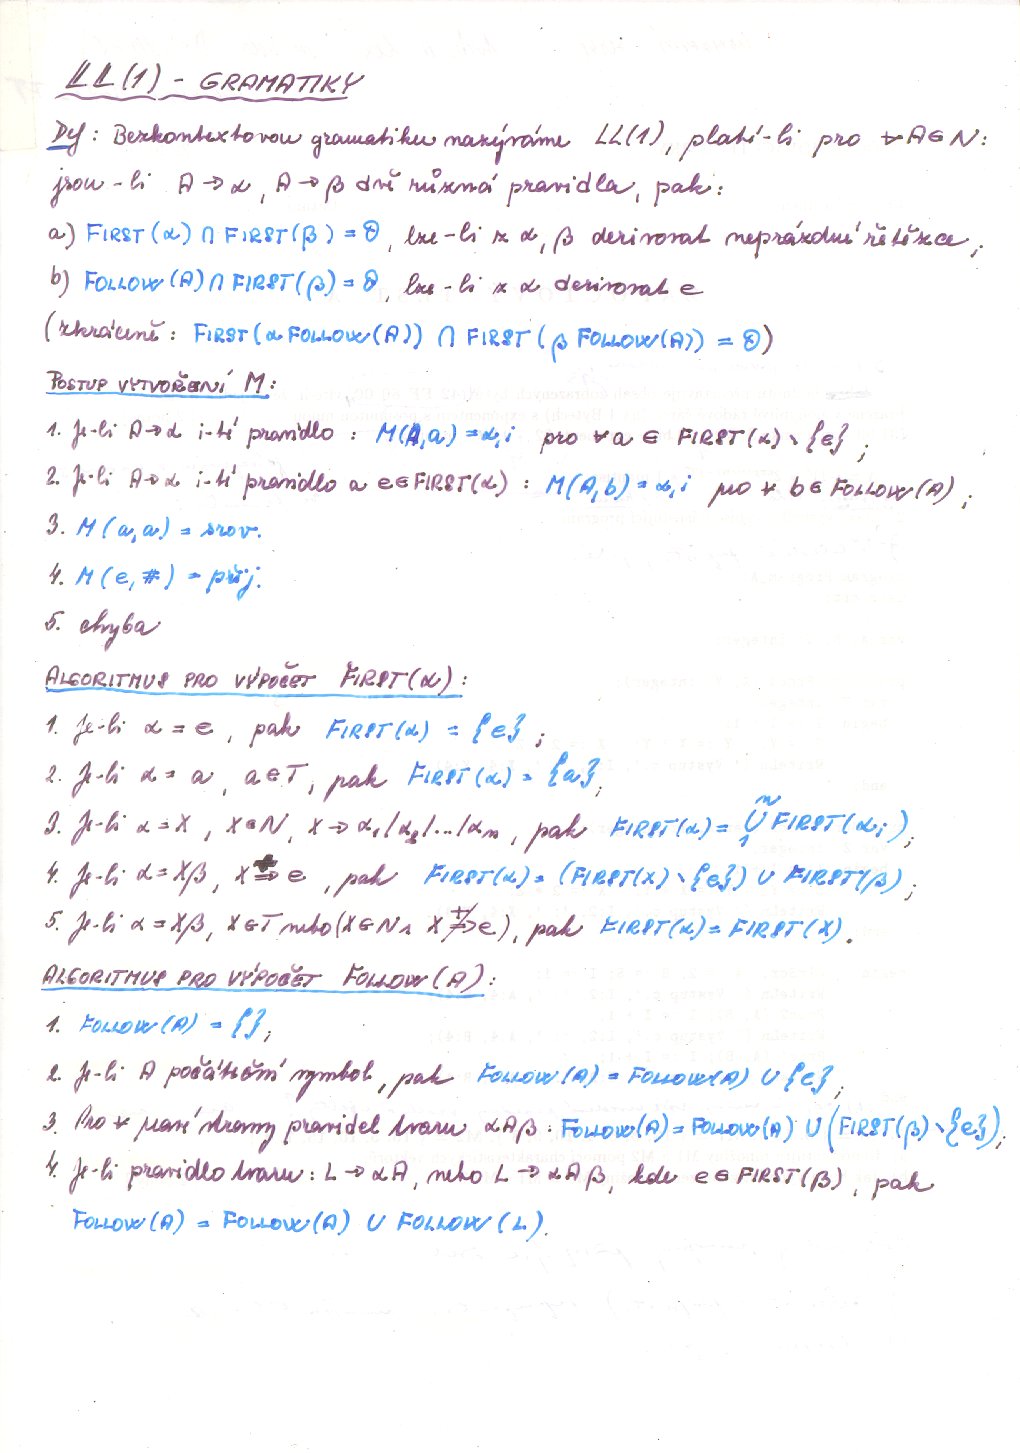 LL(1) - GRAMATIKY
Def: Bezkontextovou gramatiku nazýváme LL(1), platí-li pro ∀A∈N:
jsou-li A→α, A→β dvě různá pravidla, pak:
a) FIRST(α) ∩ FIRST(β) = ∅, lze-li z α, β derivovat neprázdné řetězce;
b) FOLLOW(A) ∩ FIRST(β) = ∅, lze-li z α derivovat e
(zkráceně: FIRST(α FOLLOW(A)) ∩ FIRST(β FOLLOW(A)) = ∅)
POSTUP VYTVOŘENÍ M:
1. Je-li A→α i-té pravidlo : M(A,a) = α,i pro ∀a ∈ FIRST(α)∖{e};
2. Je-li A→α i-té pravidlo a e∈FIRST(α) : M(A,b) = α,i pro ∀ b∈FOLLOW(A);
3. M(a,a) = srov.
4. M(e,#) = přij.
5. chyba
ALGORITMUS PRO VÝPOČET FIRST(α):
1. Je-li α = e, pak FIRST(α) = {e};
2. Je-li α = a, a∈T, pak FIRST(α) = {a};
3. Je-li α = X, X∈N, X→α₁/α₂/.../αₙ, pak FIRST(α) = ⋃₁ⁿ FIRST(αᵢ);
4. Je-li α = Xβ, X ⇒⁺ e, pak FIRST(α) = (FIRST(X)∖{e}) ∪ FIRST(β);
5. Je-li α = Xβ, X∈T nebo (X∈N ∧ X ⇏⁺ e), pak FIRST(α) = FIRST(X).
ALGORITMUS PRO VÝPOČET FOLLOW(A):
1. FOLLOW(A) = {};
2. Je-li A počáteční symbol, pak FOLLOW(A) = FOLLOW(A) ∪ {e};
3. Pro ∀ pravé strany pravidel tvaru αAβ : FOLLOW(A) = FOLLOW(A) ∪ (FIRST(β)∖{e});
4. Je-li pravidlo tvaru: L→αA, nebo L→αAβ, kde e∈FIRST(β), pak
FOLLOW(A) = FOLLOW(A) ∪ FOLLOW(L).